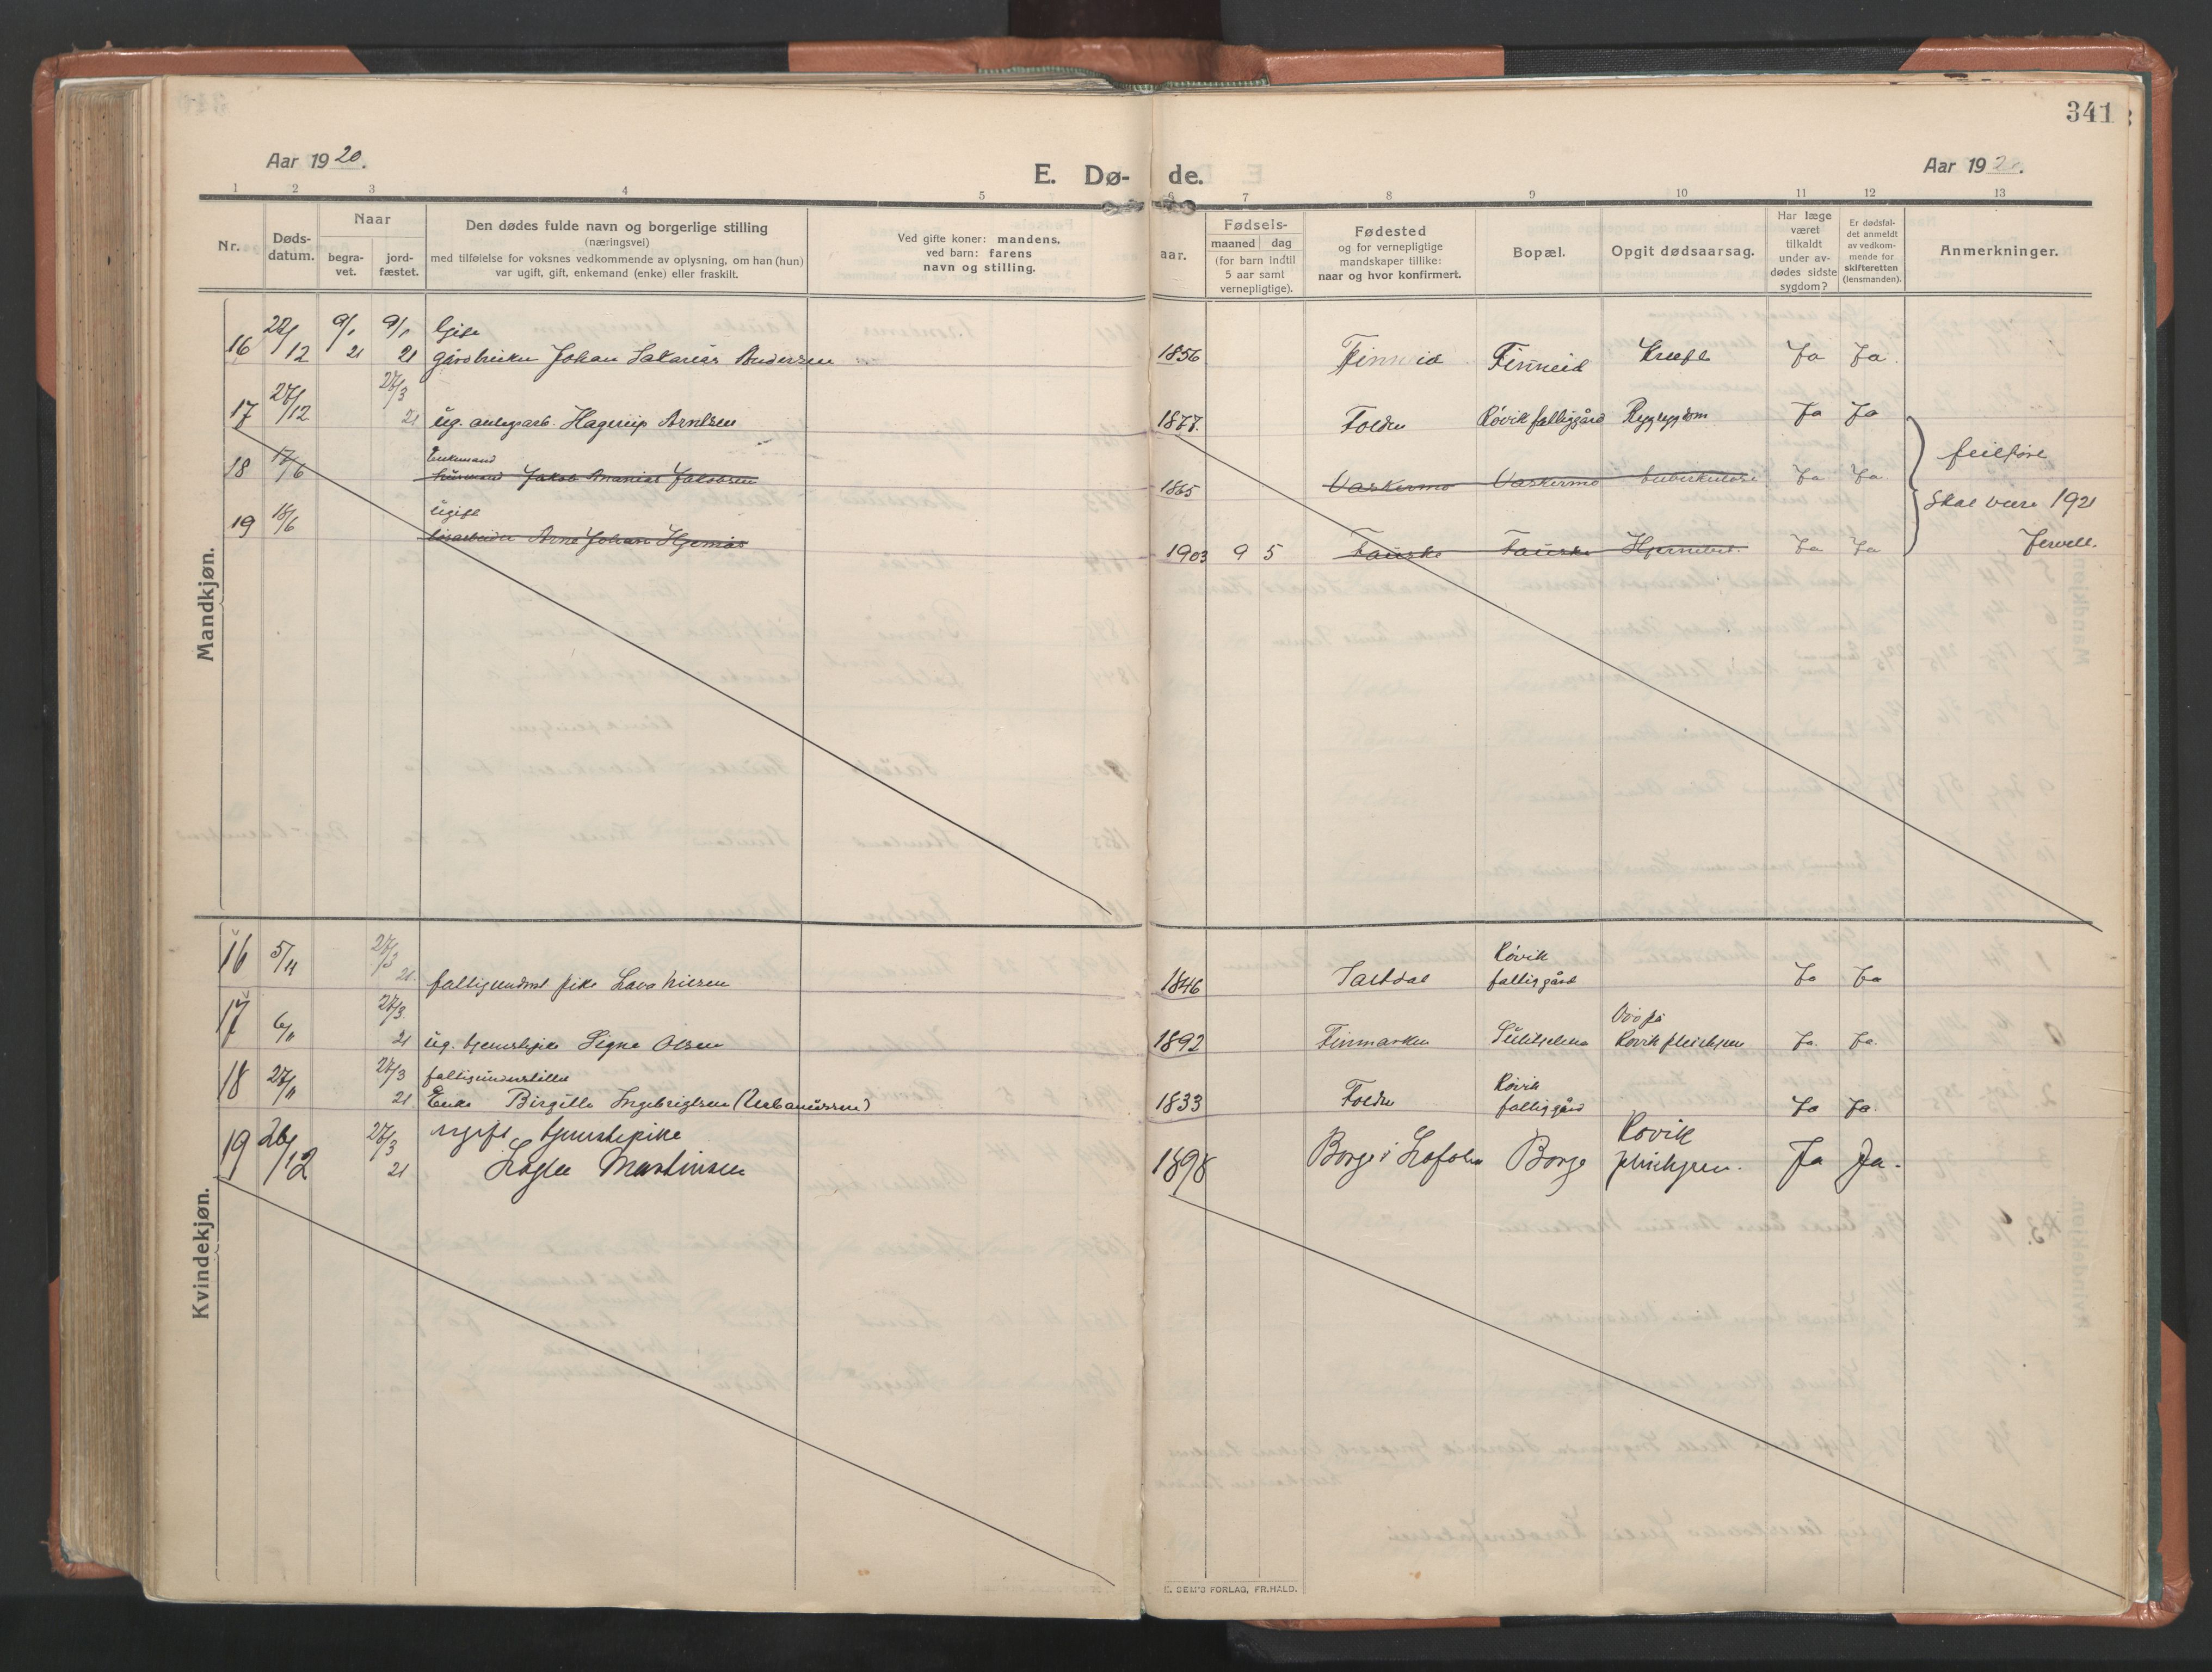 341
Aar 1920.
E. Dø- de.
Aar 192 .
1 2 3 4 5 6 7 8 9 10 11 12 13
Nr.
Døds-
datum.
Naar
begra-
vet.
jord-
fæstet.
Den dødes fulde navn og borgerlige stilling
(næringsvei)
med tilføielse for voksnes vedkommende av oplysning, om han (hun)
var ugift, gift, enkemand (enke) eller fraskilt.
Ved gifte koner: mandens,
ved barn: farens
navn og stilling.
aar.
Fødsels-
maaned dag
(for barn indtil
5 aar samt
vernepligtige).
Fødested
og for vernepligtige
mandskaper tillike:
naar og hvor konfirmert.
Bopæl.
Opgit dødsaarsag.
Har læge
været
tilkaldt
under av-
dødes sidste
sygdom?
Er dødsfal-
det anmeldt
av vedkom-
mende for
skifteretten
(lensmanden).
Anmerkninger.
Mandkjøn.
Gift
16 22/12 9/1 21 9/1 21 gårdbruker Johan Sakarias Andersen 1856 Finneid Finneid Kreft Ja Ja
17 27/12 27/3 21 ug. anlegsarb. Hagerup Arntsen 1877 Folden Røvik fattiggård Rygsygdom Ja Ja
Enkemand
18 17/6 husmand Jakob Ananias Jakobsen 1865 Vaskermo Vaskermo tuberkulose Ja Ja
feilført
ugift
19 18/6 løsarbeider Arne Johan Hjemås 1903 9 5 Fauske Fauske Ja Ja
Skal være 1921
Jervell.
Kvindekjøn.
16 5/11 27/3 21 fattigunderst. pike Lava Nilsen 1846 Saltdal Røvik fattiggård Ja Ja
17 6/11 27/3 21 ug. tjenestepike Signe Olsen 1892 Finmarken Sulitjelma Død på Røvik pleiehjem Ja. Ja.
fattigunderstøttet
18 27/11 27/3 21 Enke Birgitte Ingebrigtsen (Urbanussen) 1833 Folden Røvik fattiggård Ja Ja.
19 26/12 27/3 21 ugift tjenestepike
Martinsen 1898 Borge i Lofoten Borge Røvik pleiehjem. Ja Ja.
E. SEM'S FORLAG, FR.HALD.